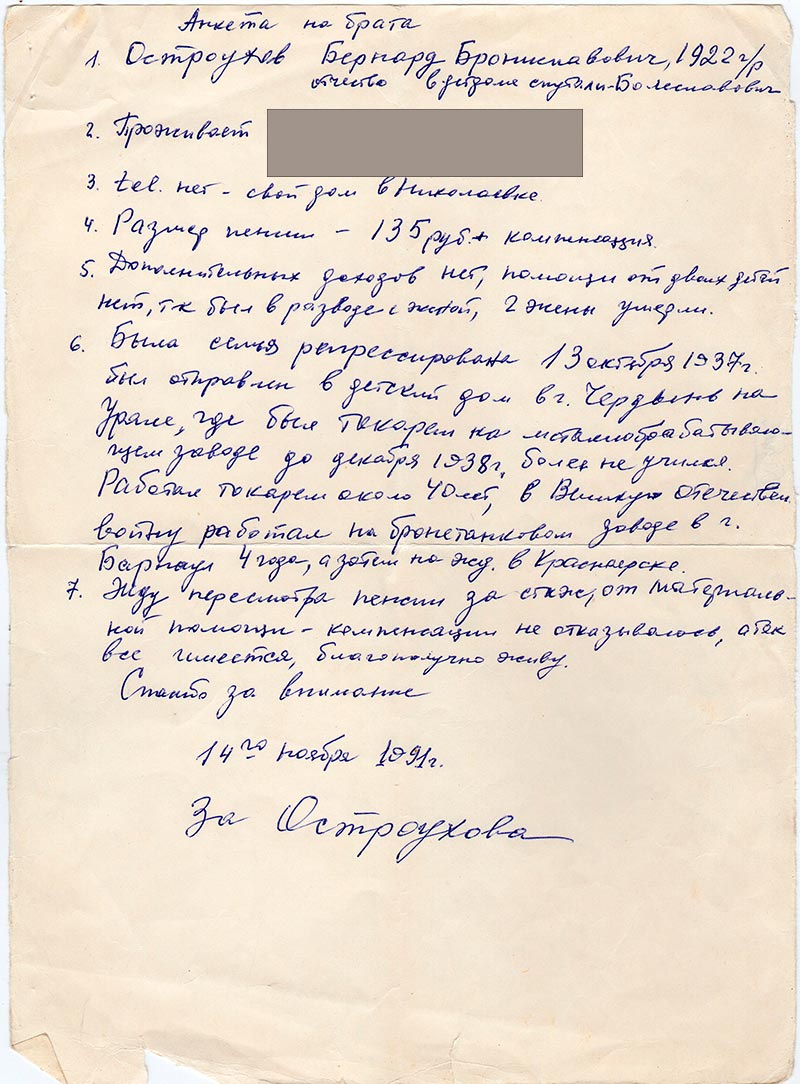 Анкета на брата
1. Остроухов Бернард Брониславович, 1922 г/р
отчество в детдоме спутали-Болеславович
2. Проживает
3. tel. нет - свой дом в Николаевке.
4. Размер пенсии - 135 руб. + компенсация.
5. Дополнительных доходов нет, помощи от двоих детей
нет, т к был в разводе с женой, 2 жены умерли.
6. Была семья репрессирована 13 октября 1937 г.
был отправлен в детский дом в г. Чердынь на
Урале, где был токарем на металлообрабатываю-
щем заводе до декабря 1938 г., более не учился.
Работал токарем около 40 лет, в Великую Отечествен.
войну работал на бронетанковом заводе в г.
Барнаул 4 года, а затем на жд. в Красноярске.
7. Жду пересмотра пенсии за стаж, от материаль-
ной помощи - компенсации не отказывалось, а так
все имеется, благополучно живу.
Спасибо за внимание
14го ноября 1991 г.
За Остроухова